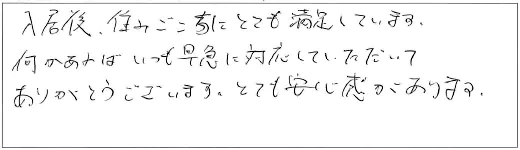 入居後、住みごこちにとても満足しています。
何かあればいつも早急に対応していただいて
ありがとうございます。とても安心感があります。